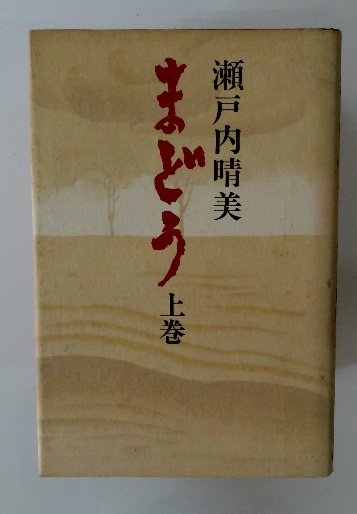 瀬戸内晴美
まどう
上巻